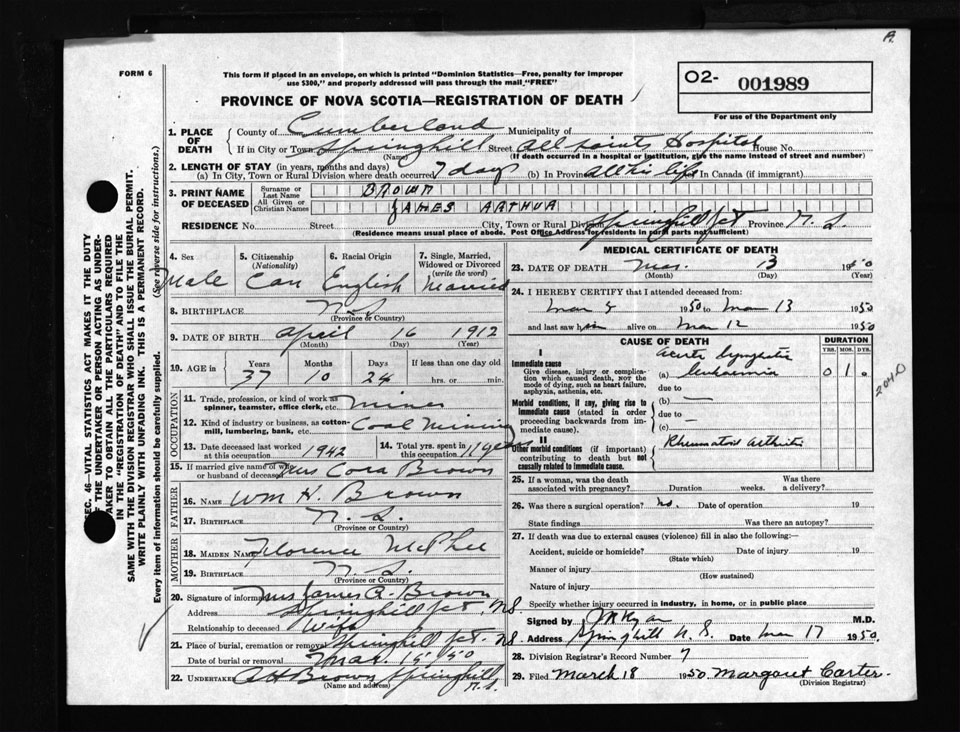 A.
FORM 6
This form if placed in an envelope, on which is printed "Dominion Statistics—Free, penalty for improper
use $300," and properly addressed will pass through the mail "FREE"
O2- 001989
For use of the Department only
PROVINCE OF NOVA SCOTIA—REGISTRATION OF DEATH
SEC. 46—VITAL STATISTICS ACT MAKES IT THE DUTY
OF THE UNDERTAKER OR PERSON ACTING AS UNDER-
TAKER TO OBTAIN ALL THE PARTICULARS REQUIRED
IN THE "REGISTRATION OF DEATH" AND TO FILE THE
SAME WITH THE DIVISION REGISTRAR WHO SHALL ISSUE THE BURIAL PERMIT.
WRITE PLAINLY WITH UNFADING INK. THIS IS A PERMANENT RECORD.
Every item of information should be carefully supplied. (See reverse side for instructions.)
1. PLACE OF DEATH County of Cumberland Municipality of
If in City or Town Springhill Street All Saints Hospital House No.
(Name) (If death occurred in a hospital or institution, give the name instead of street and number)
2. LENGTH OF STAY (in years, months and days)
(a) In City, Town or Rural Division where death occurred 7 days (b) In Province all his life In Canada (if immigrant)
3. PRINT NAME OF DECEASED Surname or Last Name BROWN
All Given or Christian Names JAMES ARTHUR
RESIDENCE No. Street City, Town or Rural Division Springhill Jct Province N.S.
(Residence means usual place of abode. Post Office Address for residents in rural parts not sufficient)
4. Sex Male
5. Citizenship (Nationality) Can
6. Racial Origin English
7. Single, Married, Widowed or Divorced (write the word) Married
8. BIRTHPLACE N.S.
(Province or Country)
9. DATE OF BIRTH April 16 1912
(Month) (Day) (Year)
10. AGE in Years Months Days If less than one day old
37 10 24 hrs. or min.
OCCUPATION
11. Trade, profession, or kind of work as spinner, teamster, office clerk, etc. miner
12. Kind of industry or business, as cotton-mill, lumbering, bank, etc. Coal Mining
13. Date deceased last worked at this occupation 1942
14. Total yrs. spent in this occupation 11 years
15. If married give name of wife or husband of deceased Mrs Cora Brown
FATHER
16. NAME Wm H. Brown
17. BIRTHPLACE N.S.
(Province or Country)
MOTHER
18. MAIDEN NAME Florence McPhee
19. BIRTHPLACE N.S.
(Province or Country)
20. Signature of informant Mrs James A. Brown
Address Springhill Jct. N.S.
Relationship to deceased Wife
21. Place of burial, cremation or removal Springhill Jct. N.S.
Date of burial or removal Mar. 15 '50
22. UNDERTAKER A H Brown Springhill N.S.
(Name and address)
MEDICAL CERTIFICATE OF DEATH
23. DATE OF DEATH Mar. 13 1950
(Month) (Day) (Year)
24. I HEREBY CERTIFY that I attended deceased from:
Mar 1950 to Mar 13 1950
and last saw him alive on Mar 12 1950
CAUSE OF DEATH DURATION
YRS. MOS. DYS.
I
Immediate cause
Give disease, injury or complication which caused death, not the mode of dying, such as heart failure, asphyxia, asthenia, etc.
(a) Acute lymphatic leukaemia 0 1 0
due to
Morbid conditions, if any, giving rise to immediate cause (stated in order proceeding backwards from immediate cause).
(b) —
due to
(c) —
II
Other morbid conditions (if important) contributing to death but not causally related to immediate cause.
Rheumatoid arthritis
25. If a woman, was the death associated with pregnancy? Duration weeks. Was there a delivery?
26. Was there a surgical operation? No. Date of operation 19
State findings Was there an autopsy?
27. If death was due to external causes (violence) fill in also the following:—
Accident, suicide or homicide? Date of injury 19
(State which)
Manner of injury
(How sustained)
Nature of injury
Specify whether injury occurred in industry, in home, or in public place
Signed by Ryan M.D.
Address Springhill N.S. Date Mar 17 1950.
28. Division Registrar's Record Number 7
29. Filed March 18 1950 Margaret Carter.
(Division Registrar)